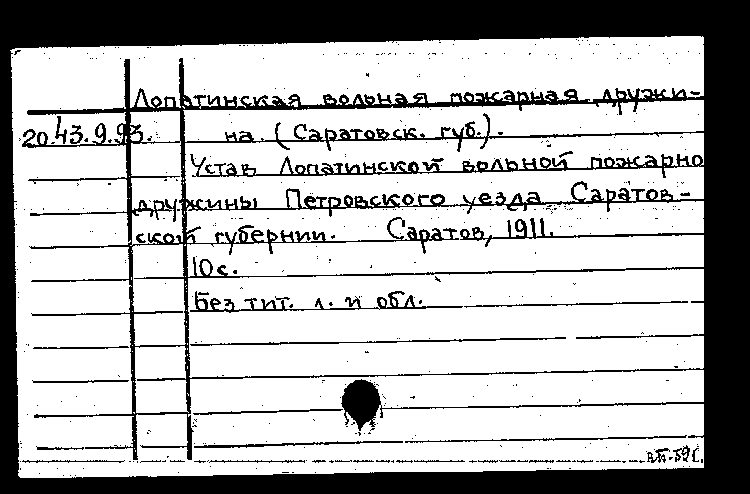 Лопатинская вольная пожарная дружи-
20.43.9.93. на (Саратовск. губ.).
Устав Лопатинской вольной пожарно
дружины Петровского уезда Саратов-
ской губернии. Саратов, 1911.
10 с.
Без тит. л. и обл.